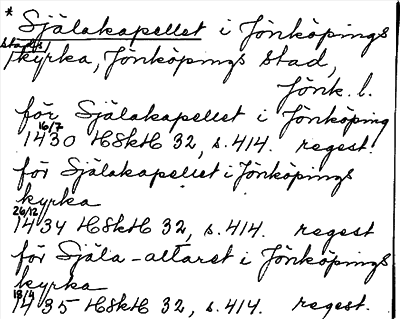 * Själakapellet i Jönköpings
stads kyrka, Jönköpings stad,
Jönk. l.
för Själakapellet i Jönköping
16/7 1430 HSkH 32, s. 414. regest.
för Själakapellet i Jönköpings
kyrka
26/12 1434 HSkH 32, s. 414. regest
för Själa-altaret i Jönköpings
kyrka
18/4 1435 HSkH 32, s. 414. regest.